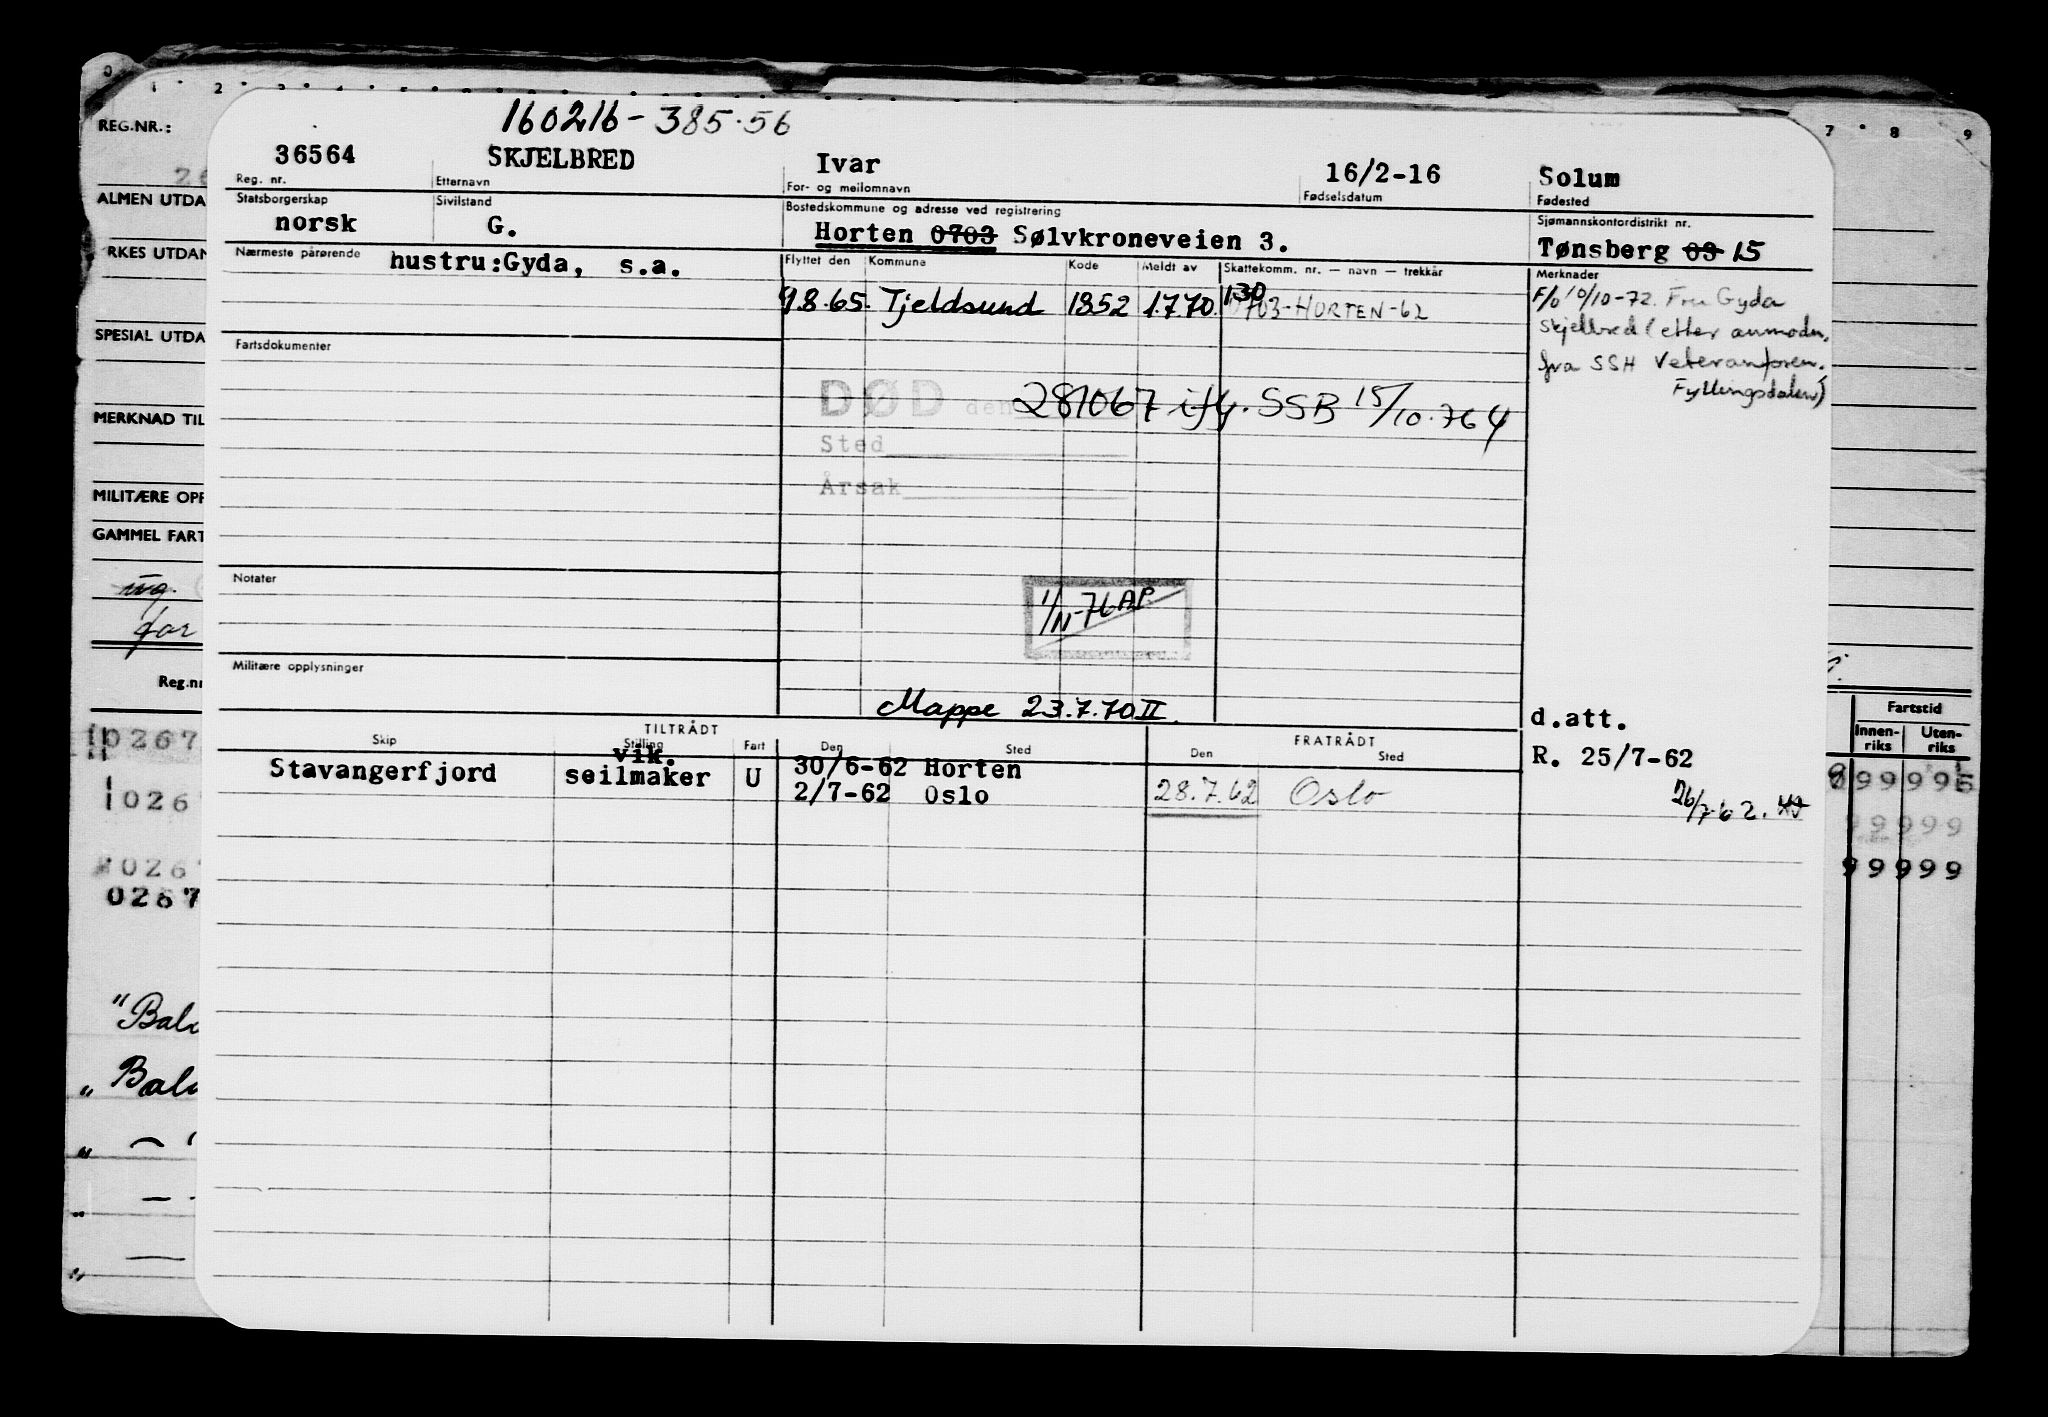 0 1 2 3 4 5 7 8 9
REG.NR.:
160216-385.56
36564 SKJELBRED Ivar 16/2-16 Solum
Reg. nr. Etternavn For- og mellomnavn Fødselsdatum Fødested
ALMEN UTDA
Statsborgerskap Sivilstand Bostedskommune og adresse ved registrering Sjømannskontordistrikt nr.
norsk G. Horten 0703 Sølvkroneveien 3. Tønsberg 09 15
RKES UTDAN
Nærmeste pårørende hustru:Gyda, s.a. Flyttet den Kommune Kode Meldt av Skattekomm. nr. — navn — trekkår Merknader
9.8.65. Tjeldsund 1852 1.7.70. 130
0703-HORTEN-62
F/o 10/10-72. Fru Gyda
Skjelbred (etter anmodn.
fra SSH Veteranforen.
Fyllingsdalen)
SPESIAL UTDA
Fartsdokumenter
DØD den 281067 iflg. SSB 15/10.76 4
MERKNAD TIL
Sted
Årsak
MILITÆRE OPP
GAMMEL FART
Notater
1/11-76 AP
for
Militære opplysninger
Reg.nr
Mappe 23.7.70 II.
d.att.
Fartstid
Innen-riks Uten-riks
TILTRÅDT FRATRÅDT
Skip Stilling Fart Den Sted Den Sted
R. 25/7-62
vik.
Stavangerfjord seilmaker U 30/6-62 Horten
2/7-62 Oslo 28.7.62 Oslo
26/7-62.
0267
0267
0267
0267
99999
99999
"Bal
" Bal
"
"
"